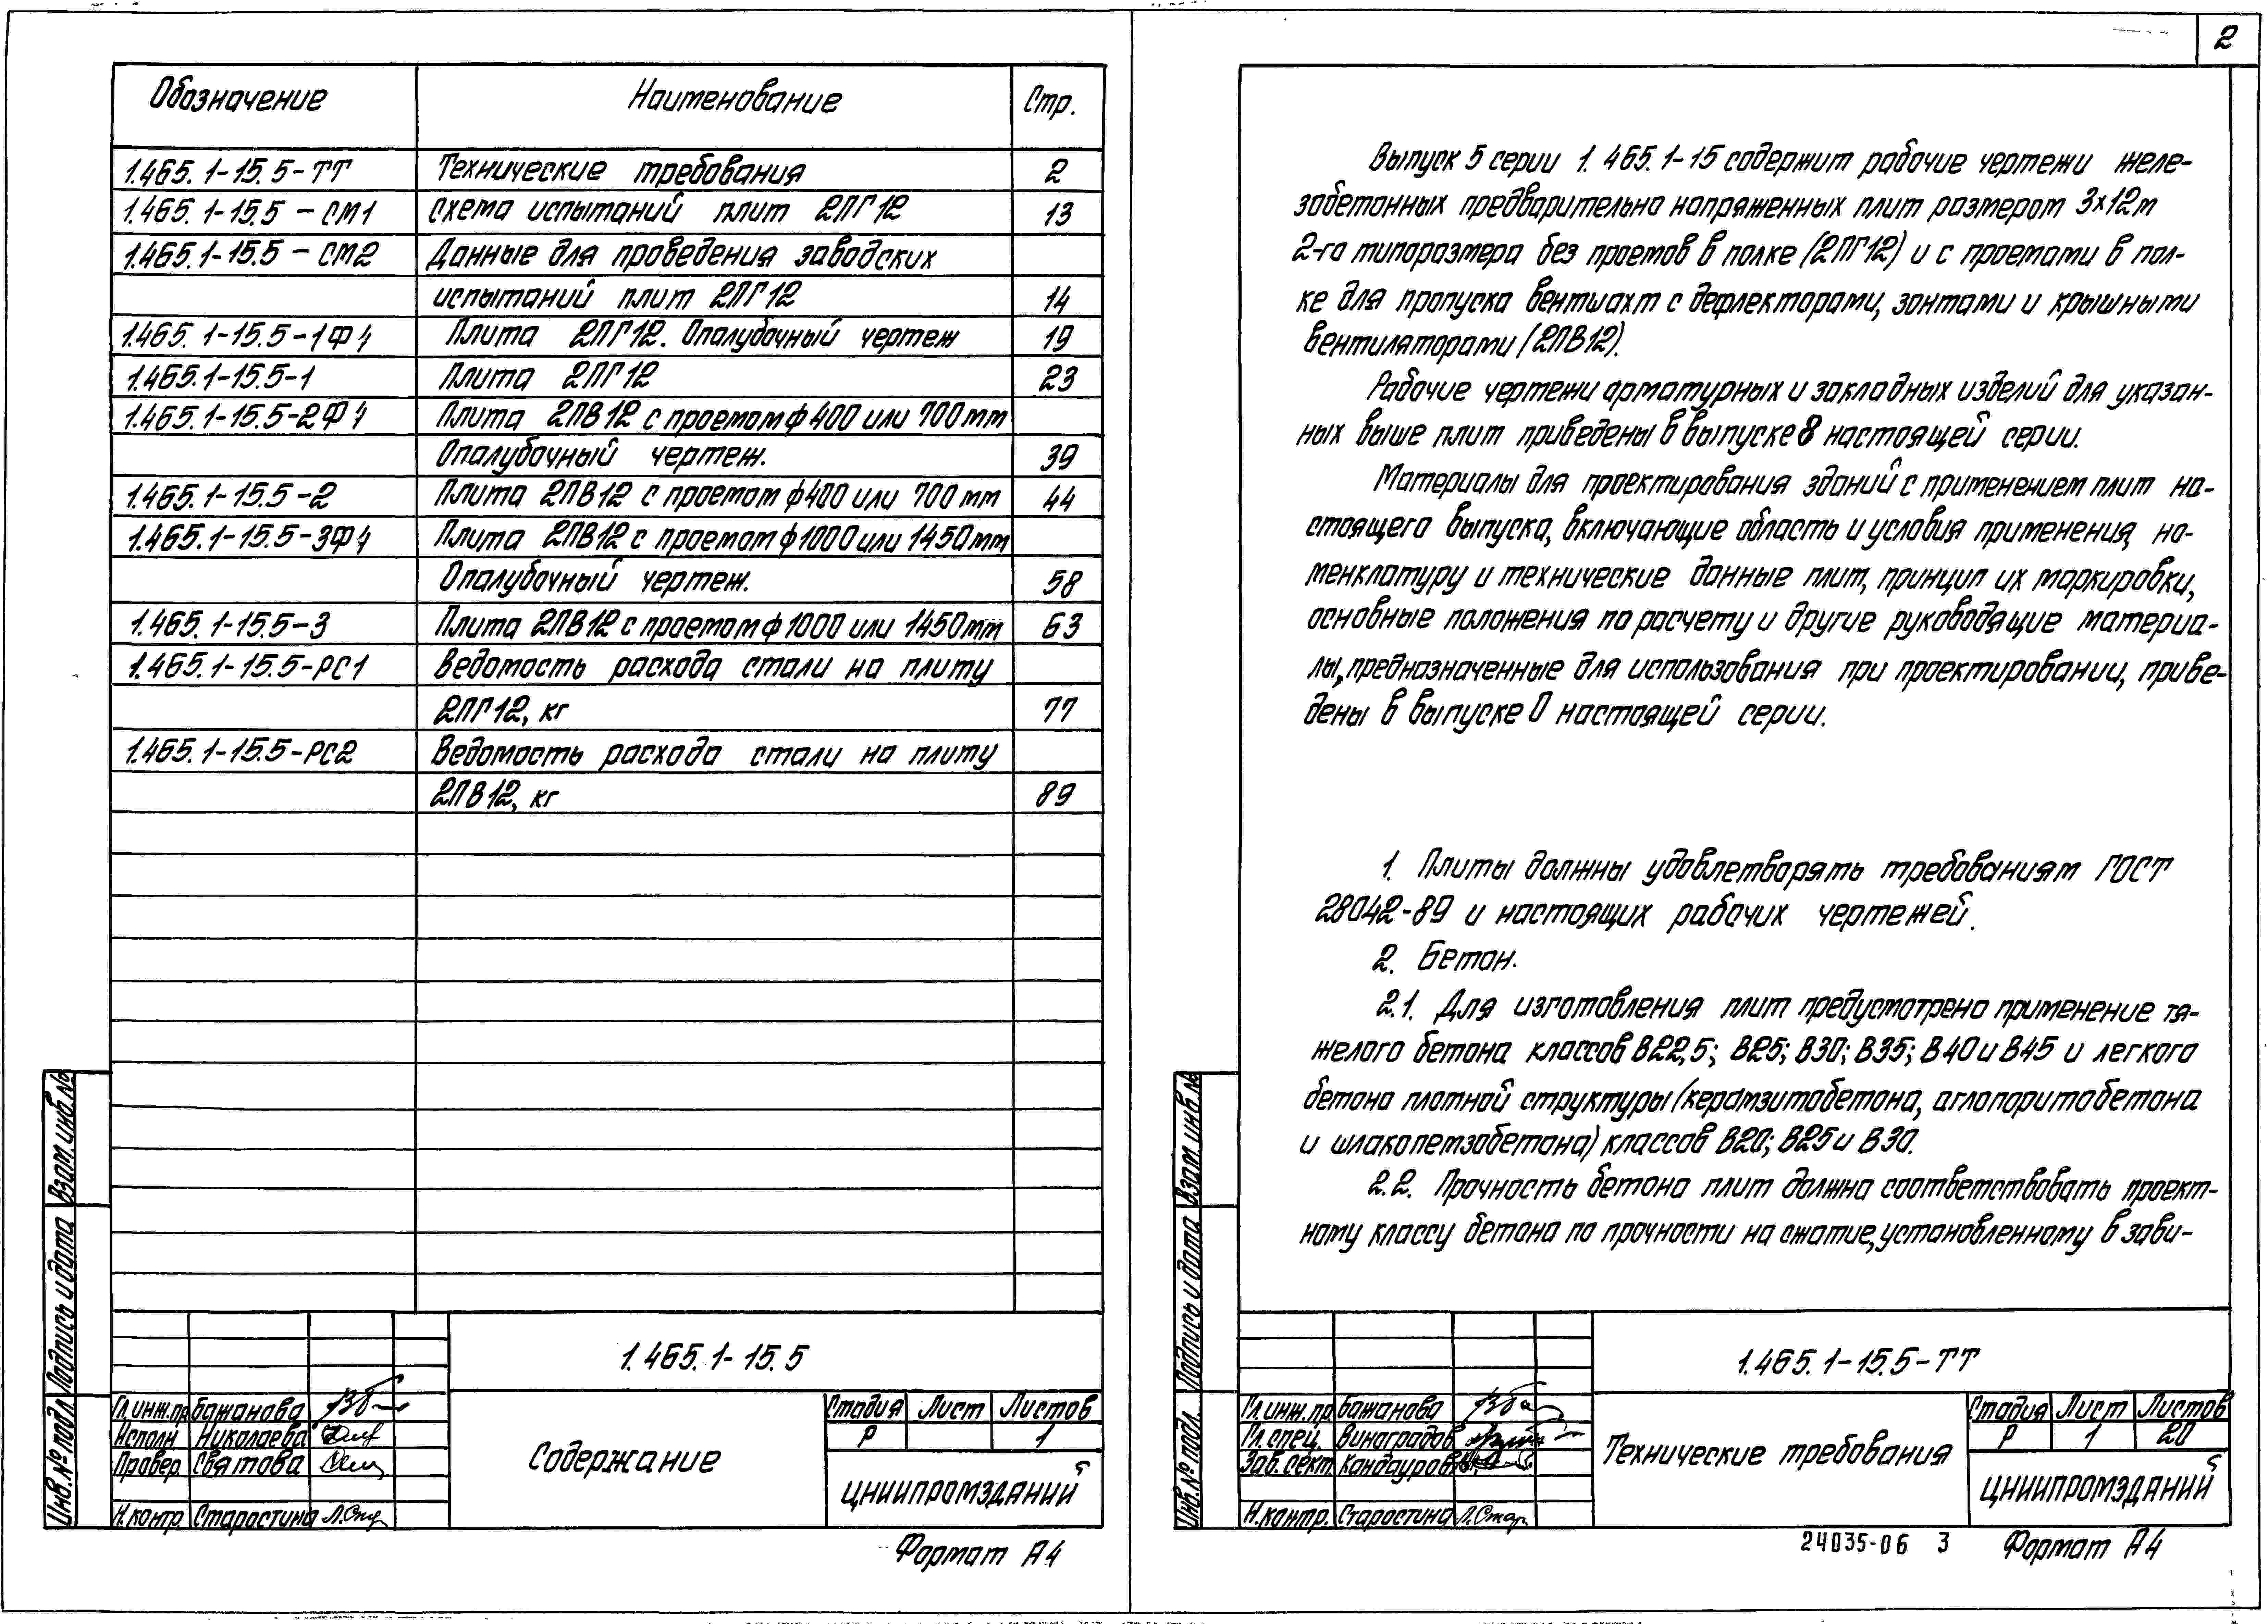 Обозначение Наименование Стр.
1.465.1-15.5-ТТ Технические требования 2
1.465.1-15.5-СМ1 Схема испытаний плит 2ПГ12 13
1.465.1-15.5-СМ2 Данные для проведения заводских
испытаний плит 2ПГ12 14
1.465.1-15.5-1ФЧ Плита 2ПГ12. Опалубочный чертеж 19
1.465.1-15.5-1 Плита 2ПГ12 23
1.465.1-15.5-2ФЧ Плита 2ПВ12 с проемом ф 400 или 700 мм
Опалубочный чертеж. 39
1.465.1-15.5-2 Плита 2ПВ12 с проемом ф 400 или 700 мм 44
1.465.1-15.5-3ФЧ Плита 2ПВ12 с проемом ф 1000 или 1450 мм
Опалубочный чертеж. 58
1.465.1-15.5-3 Плита 2ПВ12 с проемом ф 1000 или 1450 мм 63
1.465.1-15.5-РС1 Ведомость расхода стали на плиту
2ПГ12, кг 77
1.465.1-15.5-РС2 Ведомость расхода стали на плиту
2ПВ12, кг 89
Взам. инв. №
Подпись и дата
Инв. № подл.
1.465.1-15.5
Гл. инж. пр. Бажанова
Исполн. Николаева
Провер. Святова
Н. контр. Старостина
Содержание
Стадия Лист Листов
Р 1
ЦНИИПРОМЗДАНИЙ
Формат А4
2
Выпуск 5 серии 1.465.1-15 содержит рабочие чертежи желе-
зобетонных предварительно напряженных плит размером 3х12м
2-го типоразмера без проемов в полке (2ПГ12) и с проемами в пол-
ке для пропуска вентшахт с дефлекторами, зонтами и крышными
вентиляторами (2ПВ12).
Рабочие чертежи арматурных и закладных изделий для указан-
ных выше плит приведены в выпуске 8 настоящей серии.
Материалы для проектирования зданий с применением плит на-
стоящего выпуска, включающие область и условия применения, но-
менклатуру и технические данные плит, принцип их маркировки,
основные положения по расчету и другие руководящие материа-
лы, предназначенные для использования при проектировании, приве-
дены в выпуске 0 настоящей серии.
1. Плиты должны удовлетворять требованиям ГОСТ
28042-89 и настоящих рабочих чертежей.
2. Бетон.
2.1. Для изготовления плит предусмотрено применение тя-
желого бетона классов В22,5; В25; В30; В35; В40 и В45 и легкого
бетона плотной структуры (керамзитобетона, аглопоритобетона
и шлакопемзобетона) классов В20; В25 и В30.
2.2. Прочность бетона плит должна соответствовать проект-
ному классу бетона по прочности на сжатие, установленному в зави-
Взам. инв. №
Подпись и дата
Инв. № подл.
1.465.1-15.5-ТТ
Гл. инж. пр. Бажанова
Гл. спец. Виноградов
Зав. сект. Кандауров
Н. контр. Старостина
Технические требования
Стадия Лист Листов
Р 1 20
ЦНИИПРОМЗДАНИЙ
24035-06 3 Формат А4